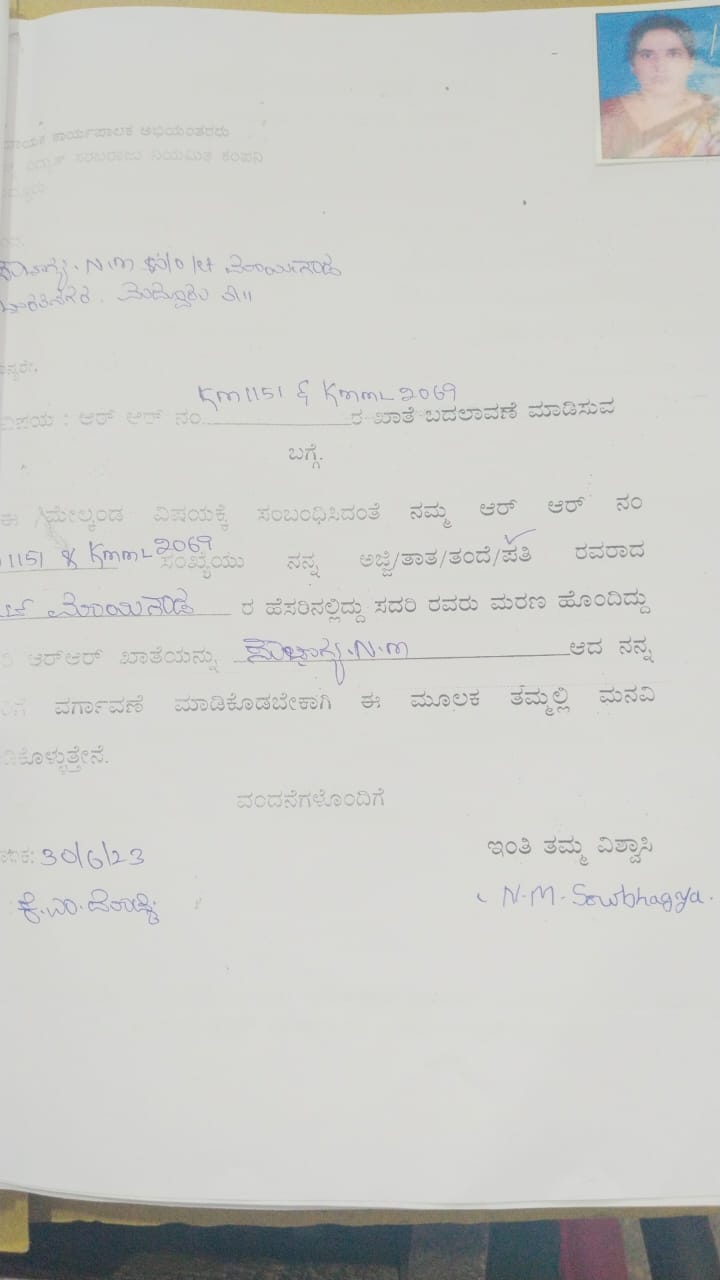 ಕಾರ್ಯಪಾಲಕ ಅಭಿಯಂತರರು
ವಿದ್ಯುತ್ ಸರಬರಾಜು ನಿಯಮಿತ ಕಂಪನಿ
N.M
ಮದ್ದೂರು ತಾ||
KM1151 & KMML2069
ವಿಷಯ : ಆರ್ ಆರ್ ನಂ ರ ಖಾತೆ ಬದಲಾವಣೆ ಮಾಡಿಸುವ
ಬಗ್ಗೆ.
ಈ ಮೇಲ್ಕಂಡ ವಿಷಯಕ್ಕೆ ಸಂಬಂಧಿಸಿದಂತೆ ನಮ್ಮ ಆರ್ ಆರ್ ನಂ
1151 & KMML2069 ಸಂಖ್ಯೆಯು ನನ್ನ ಅಜ್ಜಿ/ತಾತ/ತಂದೆ/ಪತಿ ರವರಾದ
ರ ಹೆಸರಿನಲ್ಲಿದ್ದು ಸದರಿ ರವರು ಮರಣ ಹೊಂದಿದ್ದು
ಆರ್‌ಆರ್ ಖಾತೆಯನ್ನು ಸೌಭಾಗ್ಯ.N.M ಆದ ನನ್ನ
ವರ್ಗಾವಣೆ ಮಾಡಿಕೊಡಬೇಕಾಗಿ ಈ ಮೂಲಕ ತಮ್ಮಲ್ಲಿ ಮನವಿ
ಕೊಳ್ಳುತ್ತೇನೆ.
ವಂದನೆಗಳೊಂದಿಗೆ
30/6/23
ಇಂತಿ ತಮ್ಮ ವಿಶ್ವಾಸಿ
ಕೆ.ಎಂ.
N.M. Sowbhagya.